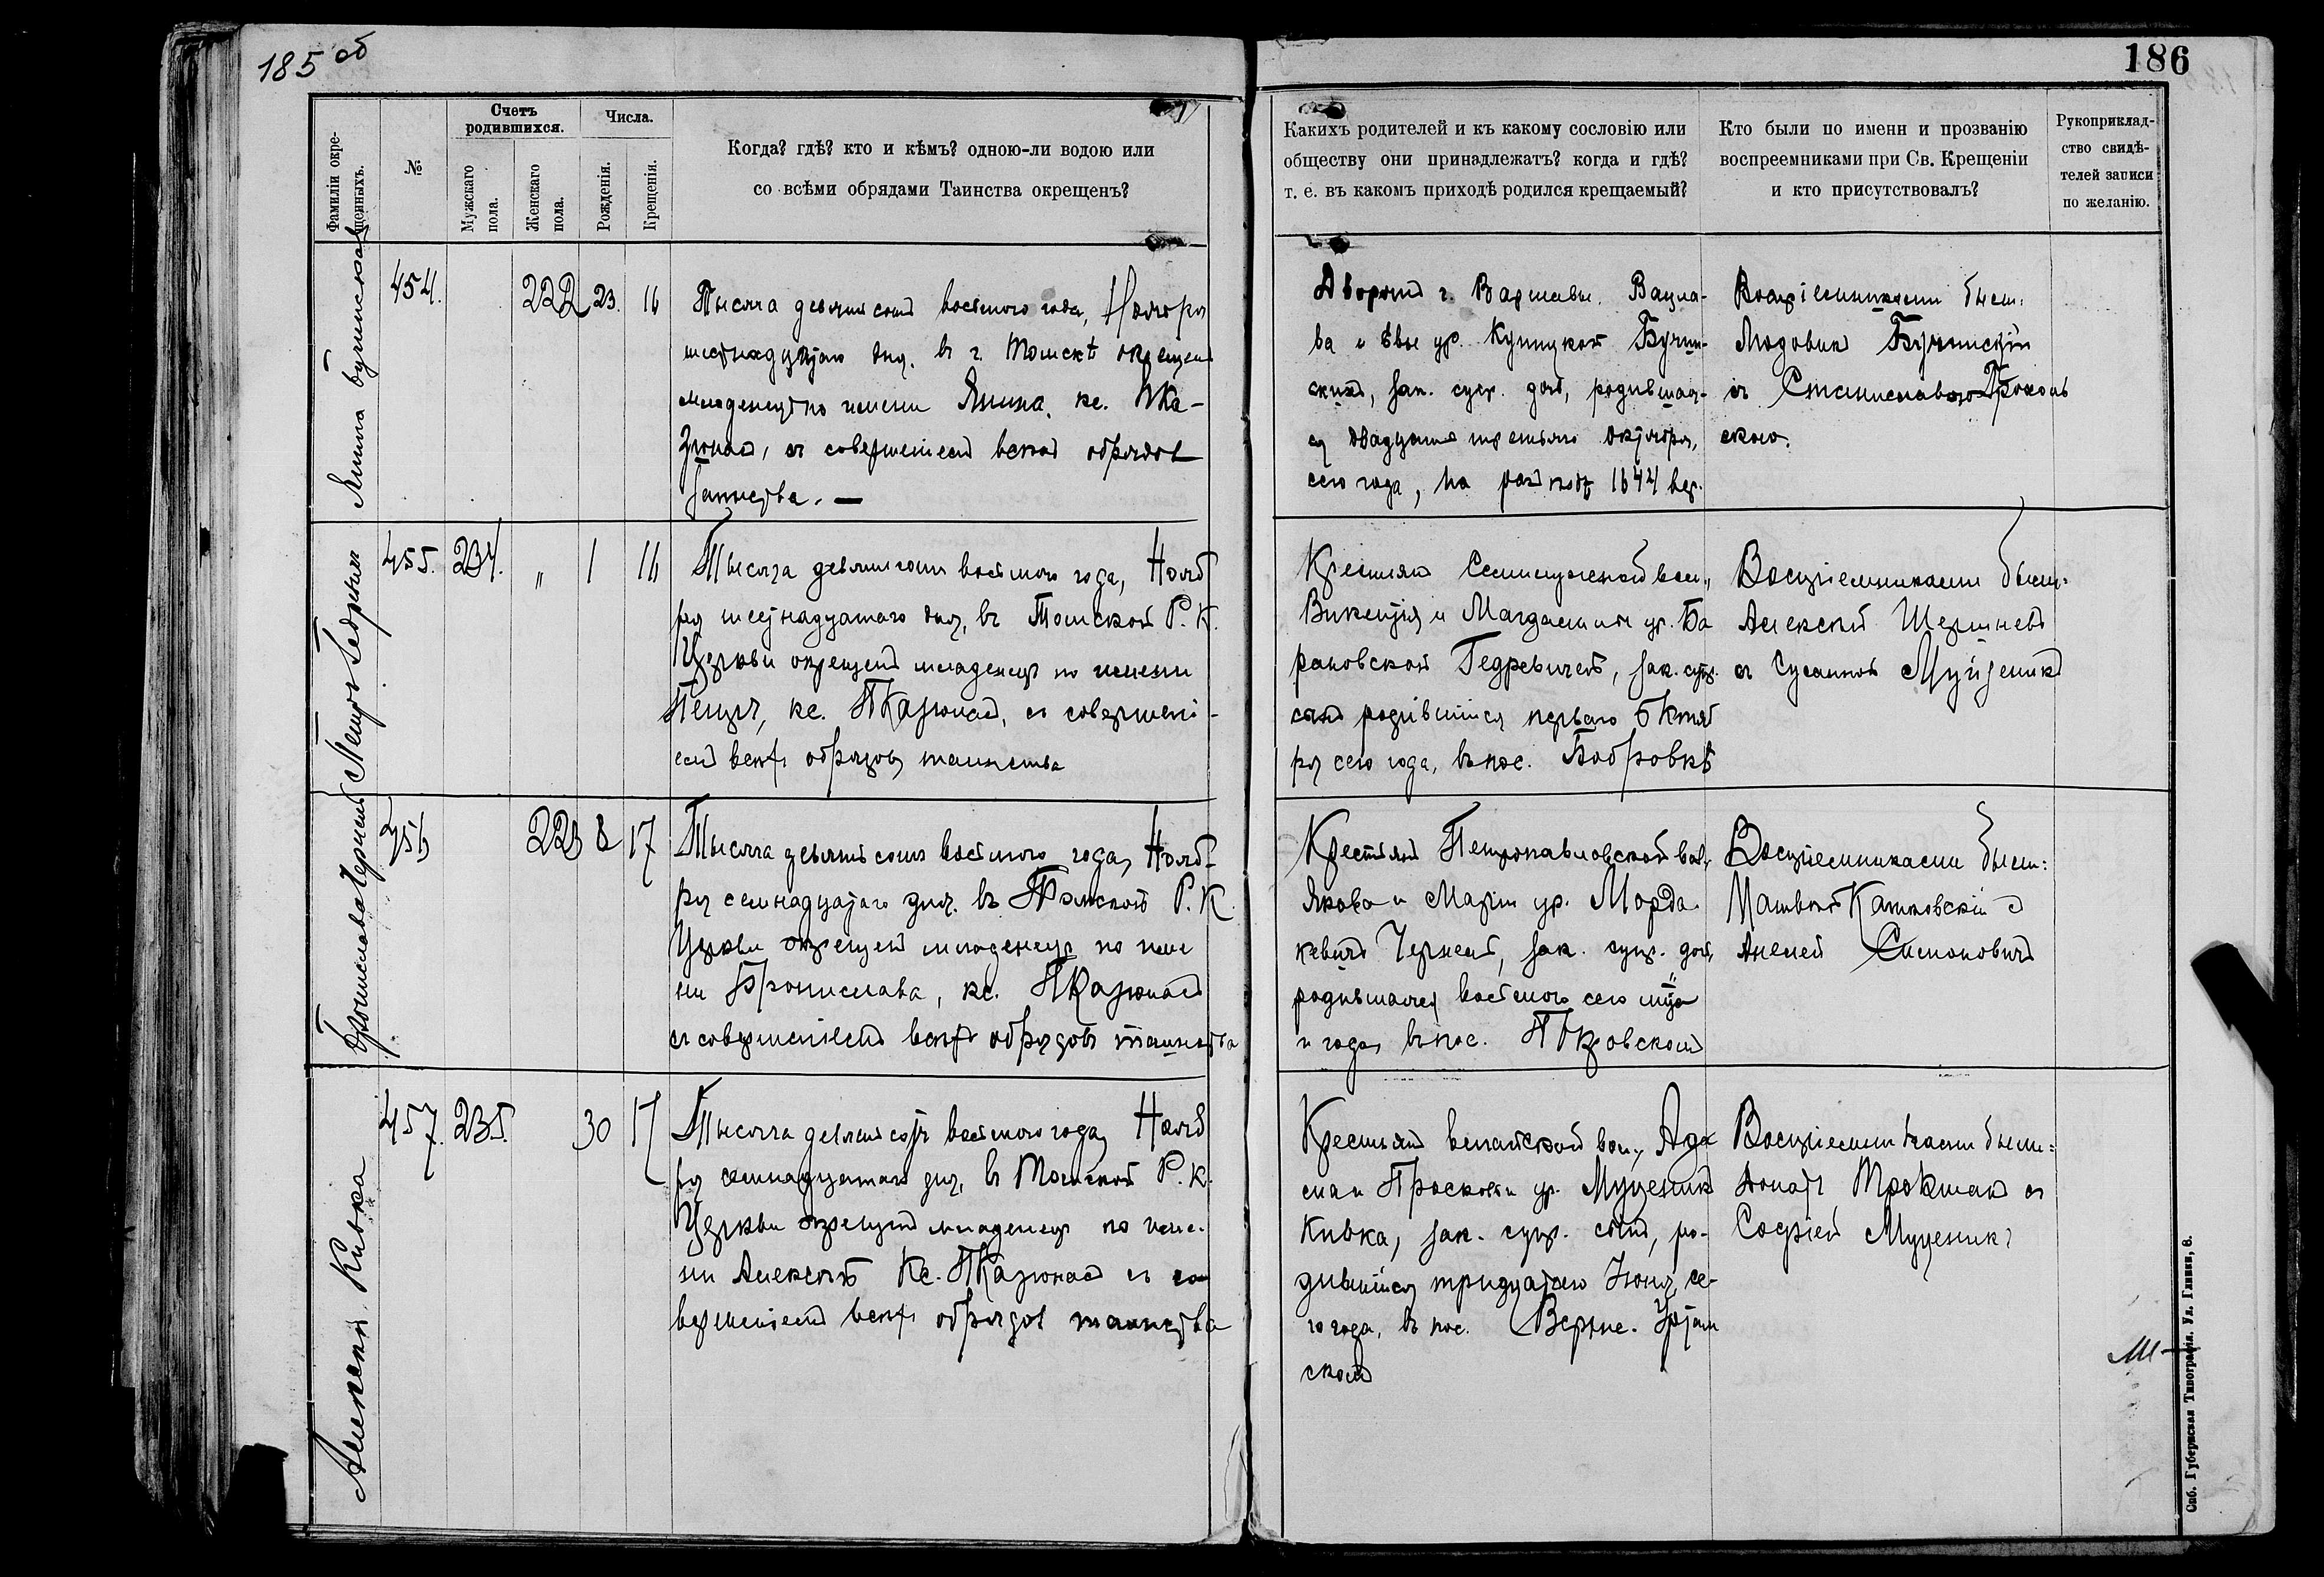 185 об
186
Фамиліи окре-
щенныхъ.
№
Счетъ
родившихся.
Мужскаго
пола.
Женскаго
пола.
Числа.
Рожденія.
Крещенія.
Когда? гдѣ? кто и кѣмъ? одною-ли водою или
со всѣми обрядами Таинства окрещенъ?
Какихъ родителей и къ какому сословію или
обществу они принадлежатъ? когда и гдѣ?
т. е. въ какомъ приходѣ родился крещаемый?
Кто были по имени и прозванію
воспреемниками при Св. Крещеніи
и кто присутствовалъ?
Рукоприклад-
ство свидѣ-
телей записи
по желанію.
Янина Бучинская
454.
222
23.
16
Тысяча девятьсотъ восьмого года, Ноября
шестнадцатаго дня. въ г. Томскѣ окрещенъ
младенецъ по имени Янина, кс.
съ совершеніемъ всѣхъ обрядовъ
таинства. —
Дворянъ г. Варшавы. Вацла-
ва и Евы ур. Бучин-
скихъ, зак. супр. дочь, родившая-
ся двадцать третьяго октября,
сего года, на разъѣздѣ 1644 вер.
Воспріемниками были:
Людовикъ Бучинскій
съ Станиславою
скою.
Петръ
455.
234.
"
1
16
Тысяча девятьсотъ восьмого года, Нояб
ря шестнадцатаго дня, въ Томской Р. К.
Церкви окрещенъ младенецъ по имени
Петръ, кс. съ совершені-
емъ всѣхъ обрядовъ таинства
Крестьянъ вол.,
Викентія и Магдалины ур. Ба
рановской Гедревичей, зак. супр.
сынъ родившійся перваго Октяб
ря сего года, въ пос. Бобровкѣ
Воспріемниками были:
Алексѣй
съ Сусанной
Бронислава Чернель
456
223
8
17
Тысяча девятьсотъ восьмого года, Нояб-
ря семнадцатаго дня. въ Томской Р. К.
Церкви окрещенъ младенецъ по име
ни Бронислава, кс.
съ совершеніемъ всѣхъ обрядовъ таинства
Крестьянъ Петропавловской вол.,
Якова и Маріи ур. Морда-
кевичъ зак. супр. дочь,
родившаяся восьмого сего мца
и года, въ пос. Покровскомъ
Воспріемниками были:
Матвѣй съ
Анелей Симоновичъ
Алексѣй Кивка
457.
235.
30
17
Тысяча девятьсотъ восьмого года, Нояб
ря семнадцатаго дня, въ Томской Р. К.
Церкви окрещенъ младенецъ по име-
ни Алексѣй кс. съ со
вершеніемъ всѣхъ обрядовъ таинства
Крестьянъ вол., Ада
ма и Прасковьи ур. Муценикъ
Кивка, зак. супр. сынъ, ро-
дившійся тридцатаго Іюня, се-
го года, въ пос. Верхне-
скомъ
Воспріемниками были:
Донатъ съ
Софіей Муценикъ
Спб. Губернская Типографія. Ул. Глинки, 8.